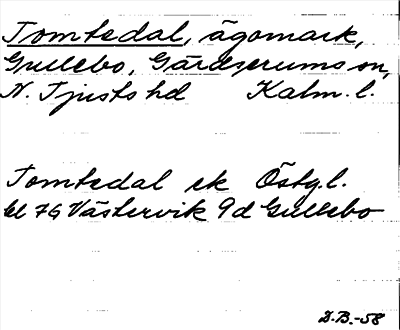 Tomtedal, ägomark,
Gullebo, Gärdserums sn,
N. Tjusts hd Kalm. l.
Tomtedal ek Östg. l.
bl 7G Västervik 9d Gullebo
D.B.-58